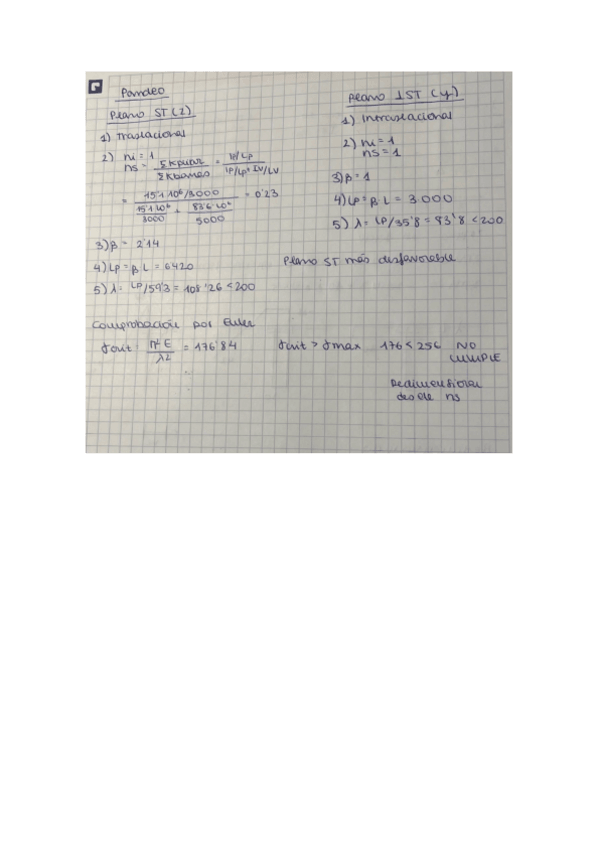 Pandeo
Plano ST (Z)
1) Traslacional
2) ni = 1
ns = ΣKpilar / ΣKbarras = IP/LP / IP/LP + IV/LV
= 15'1·10⁶/3000 / 15'1·10⁶/3000 + 83'6·10⁶/5000 = 0'23
3) β = 2'14
4) LP = β L = 6420
5) λ = LP/59'3 = 108'26 < 200
Plano ⊥ST (y)
1) Intraslacional
2) ni = 1
ns = 1
3) β = 1
4) LP = β L = 3.000
5) λ = LP/35'8 = 83'8 < 200
Plano ST más desfavorable
Comprobación por Euler
σcrit = π² E / λ² = 176'84
σcrit > σmax 176 < 256 NO CUMPLE
Redimensionar
desde ns